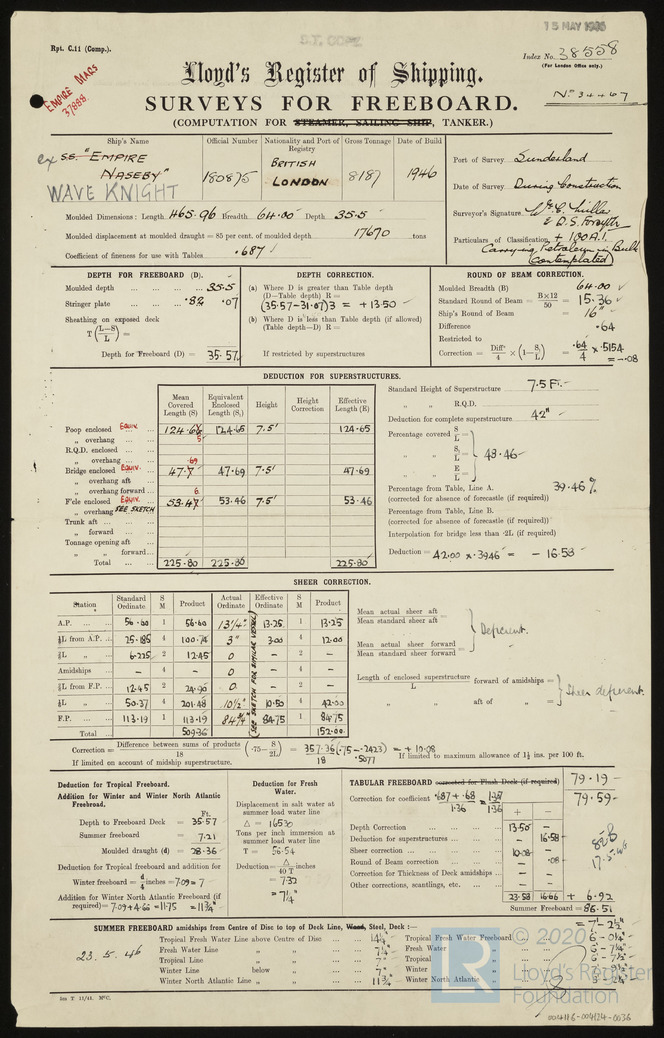 15 MAY 1946
S.T. COPY
Rpt. C.11 (Comp.).
Index No. 38558
(For London Office only.)
EMPIRE MARS
37888
Lloyd's Register of Shipping.
No 34467
SURVEYS FOR FREEBOARD.
(COMPUTATION FOR STEAMER, SAILING SHIP, TANKER.)
Ship's Name
Official Number
Nationality and Port of Registry
Gross Tonnage
Date of Build
ex S.S. "EMPIRE NASEBY"
WAVE KNIGHT
180875
BRITISH
LONDON
8187
1946
Port of Survey Sunderland
Date of Survey During Construction
Surveyor's Signature
& D.S. Forsyth
Particulars of Classification + 100 A.1.
Carrying Petroleum in Bulk
Contemplated
Moulded Dimensions: Length 465.96 Breadth 64.00 Depth 35.5
Moulded displacement at moulded draught = 85 per cent. of moulded depth 17670 tons
Coefficient of fineness for use with Tables .687
DEPTH FOR FREEBOARD (D).
Moulded depth 35.5
Stringer plate .82 .07
Sheathing on exposed deck
T (L–S/L) =
Depth for Freeboard (D) = 35.57
DEPTH CORRECTION.
(a) Where D is greater than Table depth
(D–Table depth) R =
(35.57-31.07)3 = +13.50
(b) Where D is less than Table depth (if allowed)
(Table depth–D) R =
If restricted by superstructures
ROUND OF BEAM CORRECTION.
Moulded Breadth (B) 64.00
Standard Round of Beam = B×12/50 = 15.36
Ship's Round of Beam = 16"
Difference .64
Restricted to
Correction = Diffce/4 × (1–S₁/L) = .64/4 × .5154 = -.08
DEDUCTION FOR SUPERSTRUCTURES.
Mean Covered Length (S)
Equivalent Enclosed Length (S₁)
Height
Height Correction
Effective Length (E)
Poop enclosed Equiv. 124.65 124.65 7.5' 124.65
„ overhang
R.Q.D. enclosed
„ overhang
Bridge enclosed Equiv. 47.69 47.69 7.5' 47.69
„ overhang aft
„ overhang forward
F'cle enclosed Equiv. 53.46 53.46 7.5' 53.46
„ overhang SEE SKETCH
Trunk aft
„ forward
Tonnage opening aft
„ „ forward
Total 225.80 225.80 225.80
Standard Height of Superstructure 7.5 Ft.
„ „ R.Q.D.
Deduction for complete superstructure 42"
Percentage covered S/L =
„ „ S₁/L = 48.46
„ „ E/L =
Percentage from Table, Line A. 39.46%
(corrected for absence of forecastle (if required))
Percentage from Table, Line B.
(corrected for absence of forecastle (if required))
Interpolation for bridge less than ·2L (if required)
Deduction = 42.00 × .3946 = - 16.58
SHEER CORRECTION.
Station
Standard Ordinate
S M
Product
Actual Ordinate
Effective Ordinate
S M
Product
A.P. 56.60 1 56.60 13¼" 13.25 1 13.25
⅙L from A.P. 25.185 4 100.74 3" 3.00 4 12.00
⅓L „ 6.225 2 12.45 0 – 2 –
Amidships – 4 – 0 – 4 –
⅓L from F.P. 12.45 2 24.90 0 – 2 –
⅙L „ 50.37 4 201.48 10½" 10.50 4 42.00
F.P. 113.19 1 113.19 84¾" 84.75 1 84.75
(SEE SKETCH FOR SIMILAR VESSEL)
Total 509.36 152.00
Mean actual sheer aft
Mean standard sheer aft =
Mean actual sheer forward
Mean standard sheer forward =
Deficient.
Length of enclosed superstructure forward of amidships =
L
„ „ aft of „ =
Sheer deficient.
Correction = Difference between sums of products/18 (·75–S/2L) = 357.36/18 (.75-.2423) = +10.08
.5077
If limited on account of midship superstructure.
If limited to maximum allowance of 1½ ins. per 100 ft.
Deduction for Tropical Freeboard.
Addition for Winter and Winter North Atlantic Freeboard.
Ft.
Depth to Freeboard Deck = 35.57
Summer freeboard = 7.21
Moulded draught (d) = 28.36
Deduction for Tropical freeboard and addition for
Winter freeboard = d/4 inches = 7.09 = 7
Addition for Winter North Atlantic Freeboard (if
required) = 7.09 + 4.66 = 11.75 = 11¾"
Deduction for Fresh Water.
Displacement in salt water at summer load water line
Δ = 16530
Tons per inch immersion at summer load water line
T = 56.54
Deduction = Δ/40 T inches
= 7.32
= 7¼"
TABULAR FREEBOARD corrected for Flush Deck (if required) 79.19
Correction for coefficient .687 + .68/1.36 = 1.367/1.36 79.59
+ –
Depth Correction 13.50 –
Deduction for superstructures – 16.58
Sheer correction 10.08 –
Round of Beam correction – .08
Correction for Thickness of Deck amidships – –
Other corrections, scantlings, etc. – –
23.58 16.66 + 6.92
Summer Freeboard = 86.51
SUMMER FREEBOARD amidships from Centre of Disc to top of Deck Line, Wood, Steel, Deck :— = 7'- 2½"
23.5.46
Tropical Fresh Water Line above Centre of Disc 14¼"
Fresh Water Line „ „ 7¼"
Tropical Line „ „ 7"
Winter Line below „ 7"
Winter North Atlantic Line „ „ 11¾"
Tropical Fresh Water Freeboard 6'- 0¼"
Fresh Water „ 6'- 7¼"
Tropical „ 6'- 7½"
Winter „
Winter North Atlantic „
© 2020
Lloyd's Register
Foundation
LR
004116-004124-0036